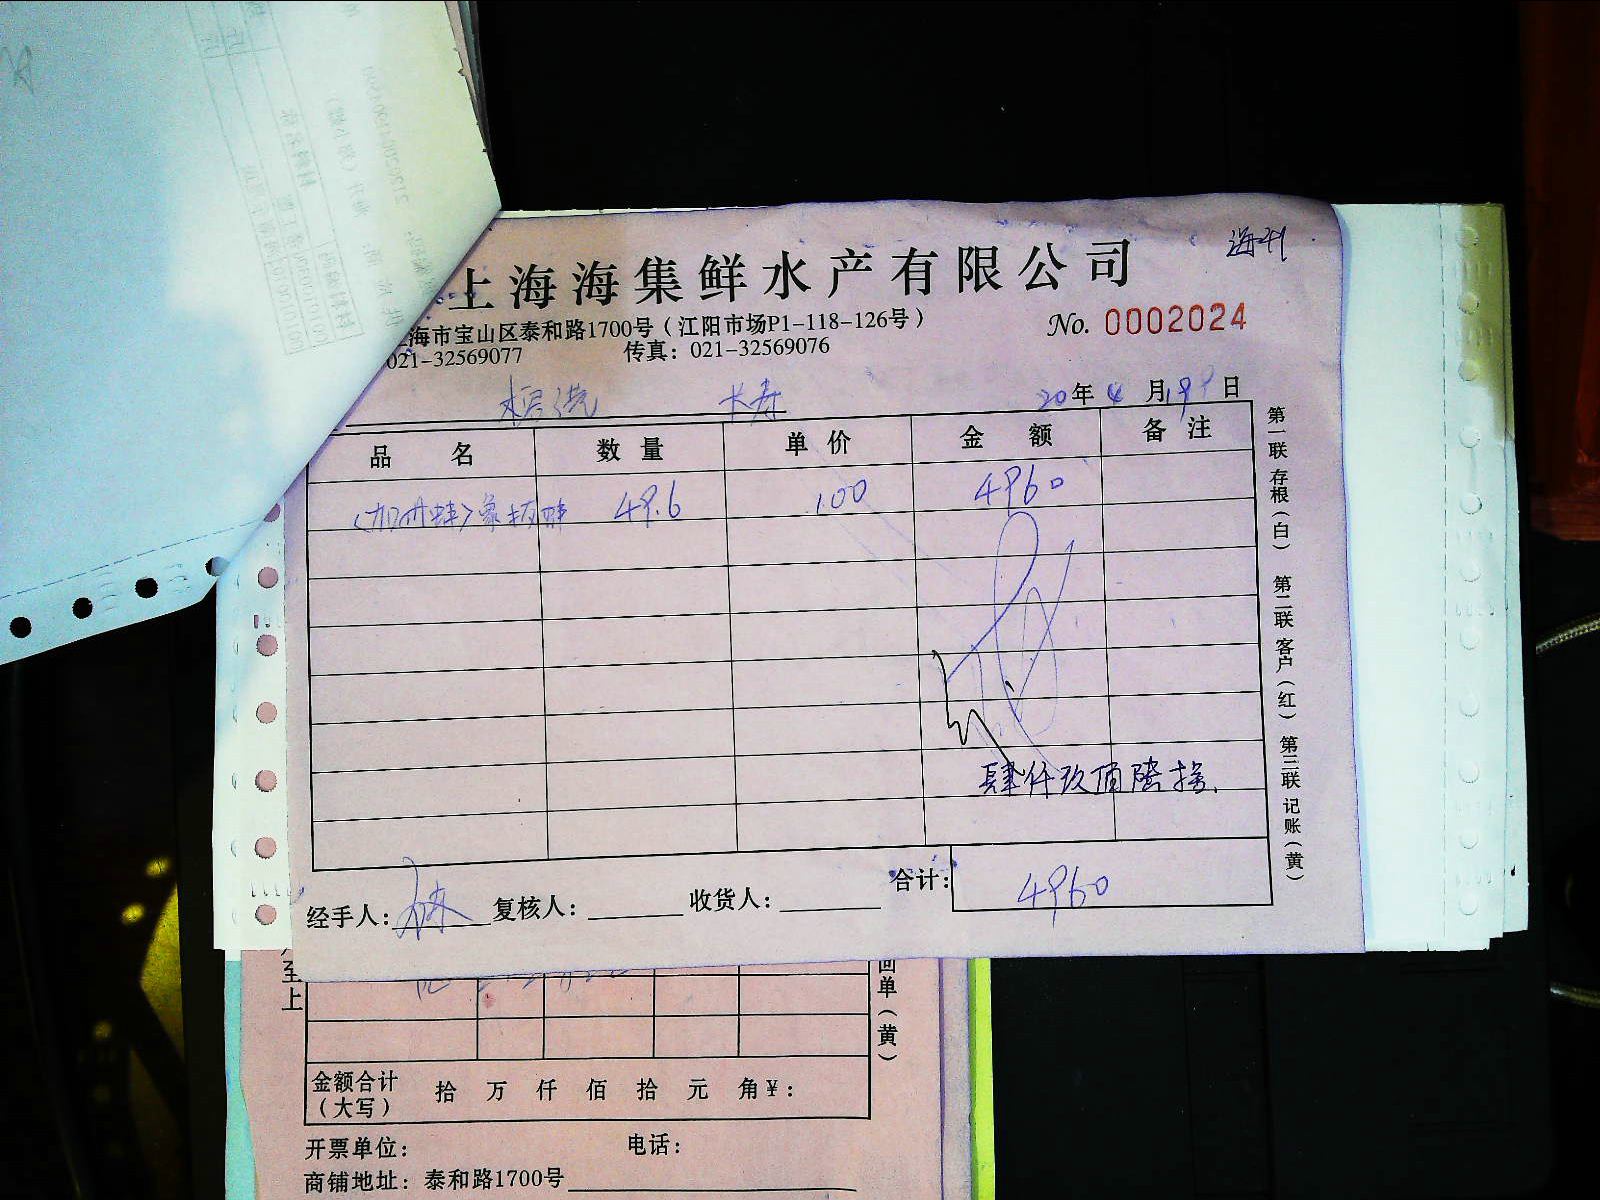 上海海集鲜水产有限公司
海市宝山区泰和路1700号（江阳市场P1-118-126号）
No. 0002024
021-32569077 传真：021-32569076
长寿
20年4月19日
品名 数量 单价 金额 备注
象拔蚌 49.6 100 4960
肆仟玖佰陆拾
合计：4960
经手人： 复核人： 收货人：
第一联存根（白） 第二联客户（红） 第三联记账（黄）
至上
回单（黄）
金额合计（大写） 拾 万 仟 佰 拾 元 角¥：
开票单位： 电话：
商铺地址：泰和路1700号